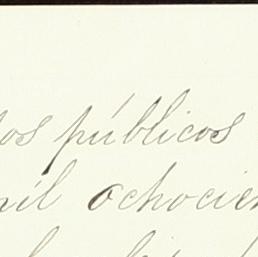 os públicos
mil ochocien